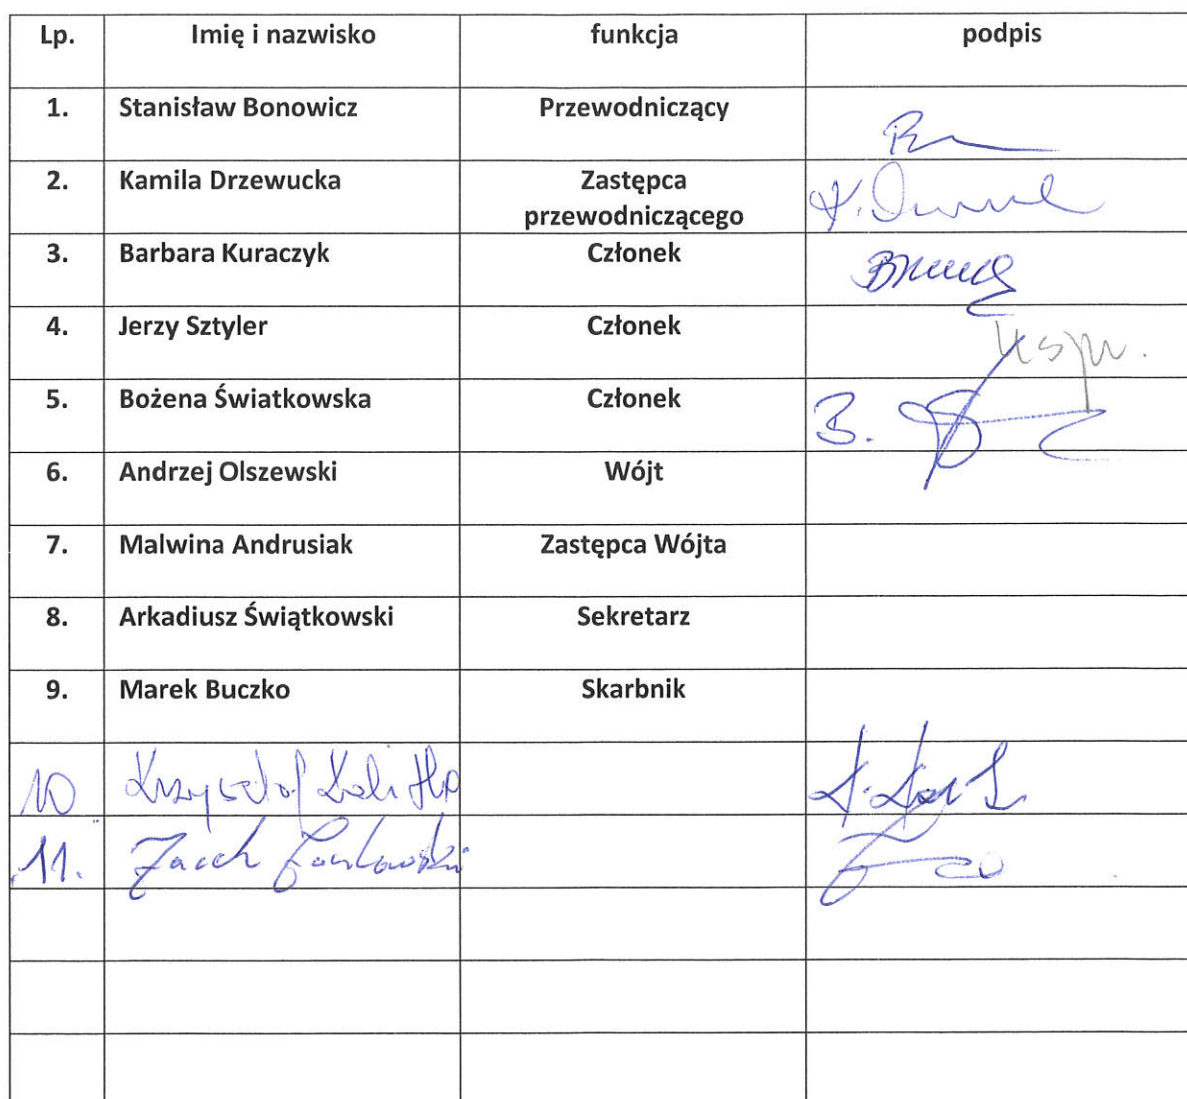 Lp. Imię i nazwisko funkcja podpis
1. Stanisław Bonowicz Przewodniczący
2. Kamila Drzewucka Zastępca
przewodniczącego
3. Barbara Kuraczyk Członek
4. Jerzy Sztyler Członek
5. Bożena Światkowska Członek
6. Andrzej Olszewski Wójt
7. Malwina Andrusiak Zastępca Wójta
8. Arkadiusz Świątkowski Sekretarz
9. Marek Buczko Skarbnik
10 Krzysztof
11.